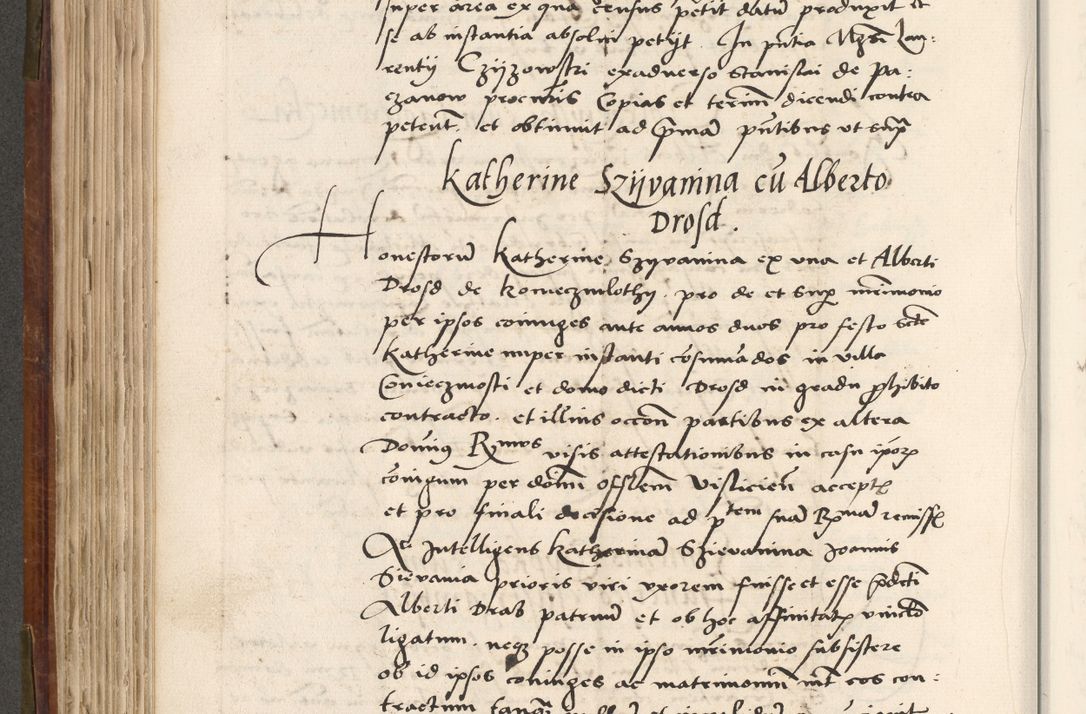 super area ex qua census petit datum produxit et
se ab instantia absolvi petijt. In pñtia Mgri Lau:
rentij Czijzowski exadverso Stanislai de Pa:
czanow procuris Copias et termin dicendi contra
petent. et obtinuit ad primã pñtibus ut supra
Katherine Szijvanina cũ Alberto
Drosd.
Honestorũ Katherine Szijvanina ex una et Alberti
Drosd de Konieczmlothy. pro de et sup mrimonio
per ipsos coniuges ante annos duos pro festo scte
Katherine nuper instanti cosumãdos in villa
Conieczmosti et domo dicti Drosd in gradu phibito
contracto. et illius occon partibus ex altera
Domnus Rmus visis attestationibus in casu ipor
coniugum per domi officlem Vislicien accept
et pro finali decisione ad ptem suã Rmã remiss
Ac Intelligens Katherinã Szievanina Joannis
Sievania prioris viri uxorem fuisse et esse pdcti
Alberti Drab patruũ et ob hoc affinitat vinclo
ligatum. neq posse in ipso mrimonio subsistere
ob id ipsos coniuges ac matrimoniũ int eos con:
tractum